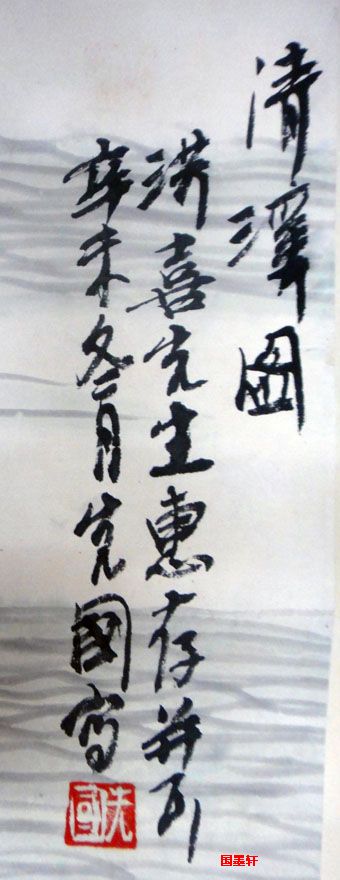 清澤图
洪喜先生惠存并
辛未冬月先國写
先國
国墨轩